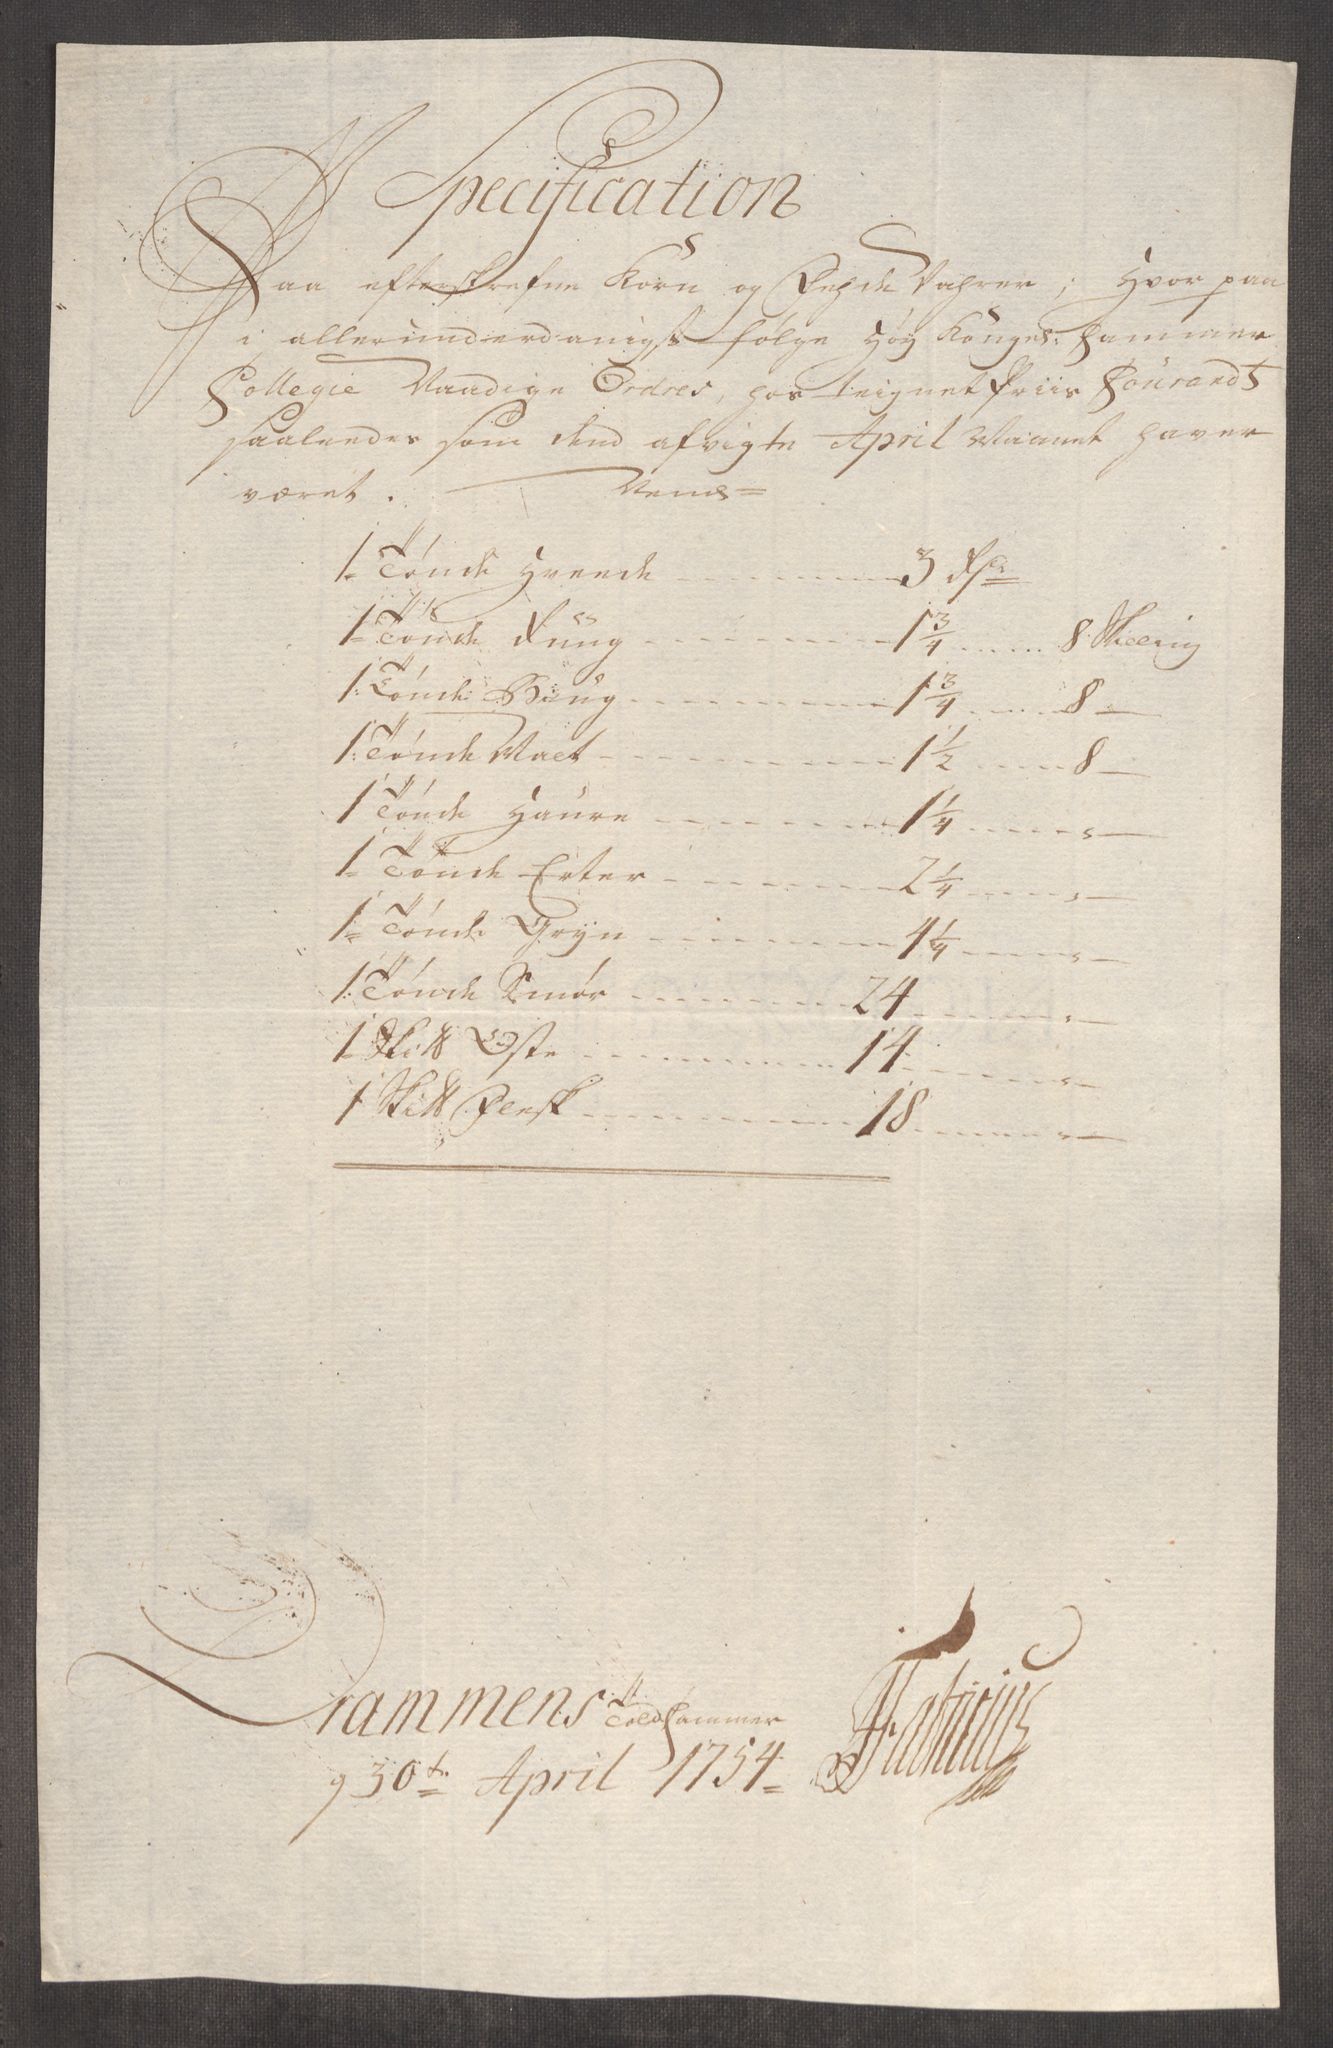 Specification
Paa efterskrefne Korn og Fehde Vahrer; Hvorpaa
i allerunderdanigst følge Høy Kongel: Cammer
Collegie Naadige Ordres, hos teignet Priis Couran##t
saaledes som dend afvigte April Maanet haver
været. Nemlig=
1 Tønde Hvede 3 Rdr
1 Tønde Rüug 1 3/4 8 Skilling
1 Tønde Büg 1 3/4 8 -
1 Tønde Malt 1 1/2 8 -
1 Tønde Haure 1 1/4 „ -
1 Tønde Erter 2 1/4 „ -
1 Tønde Gryn 4 1/4 „ -
1 Tønde Smør 24 „ -
1 Skltt Oste 14 „ -
1 Skltt Flesk 18 „ -
Drammens Told Cammer
d 30te April 1754 Fabricius